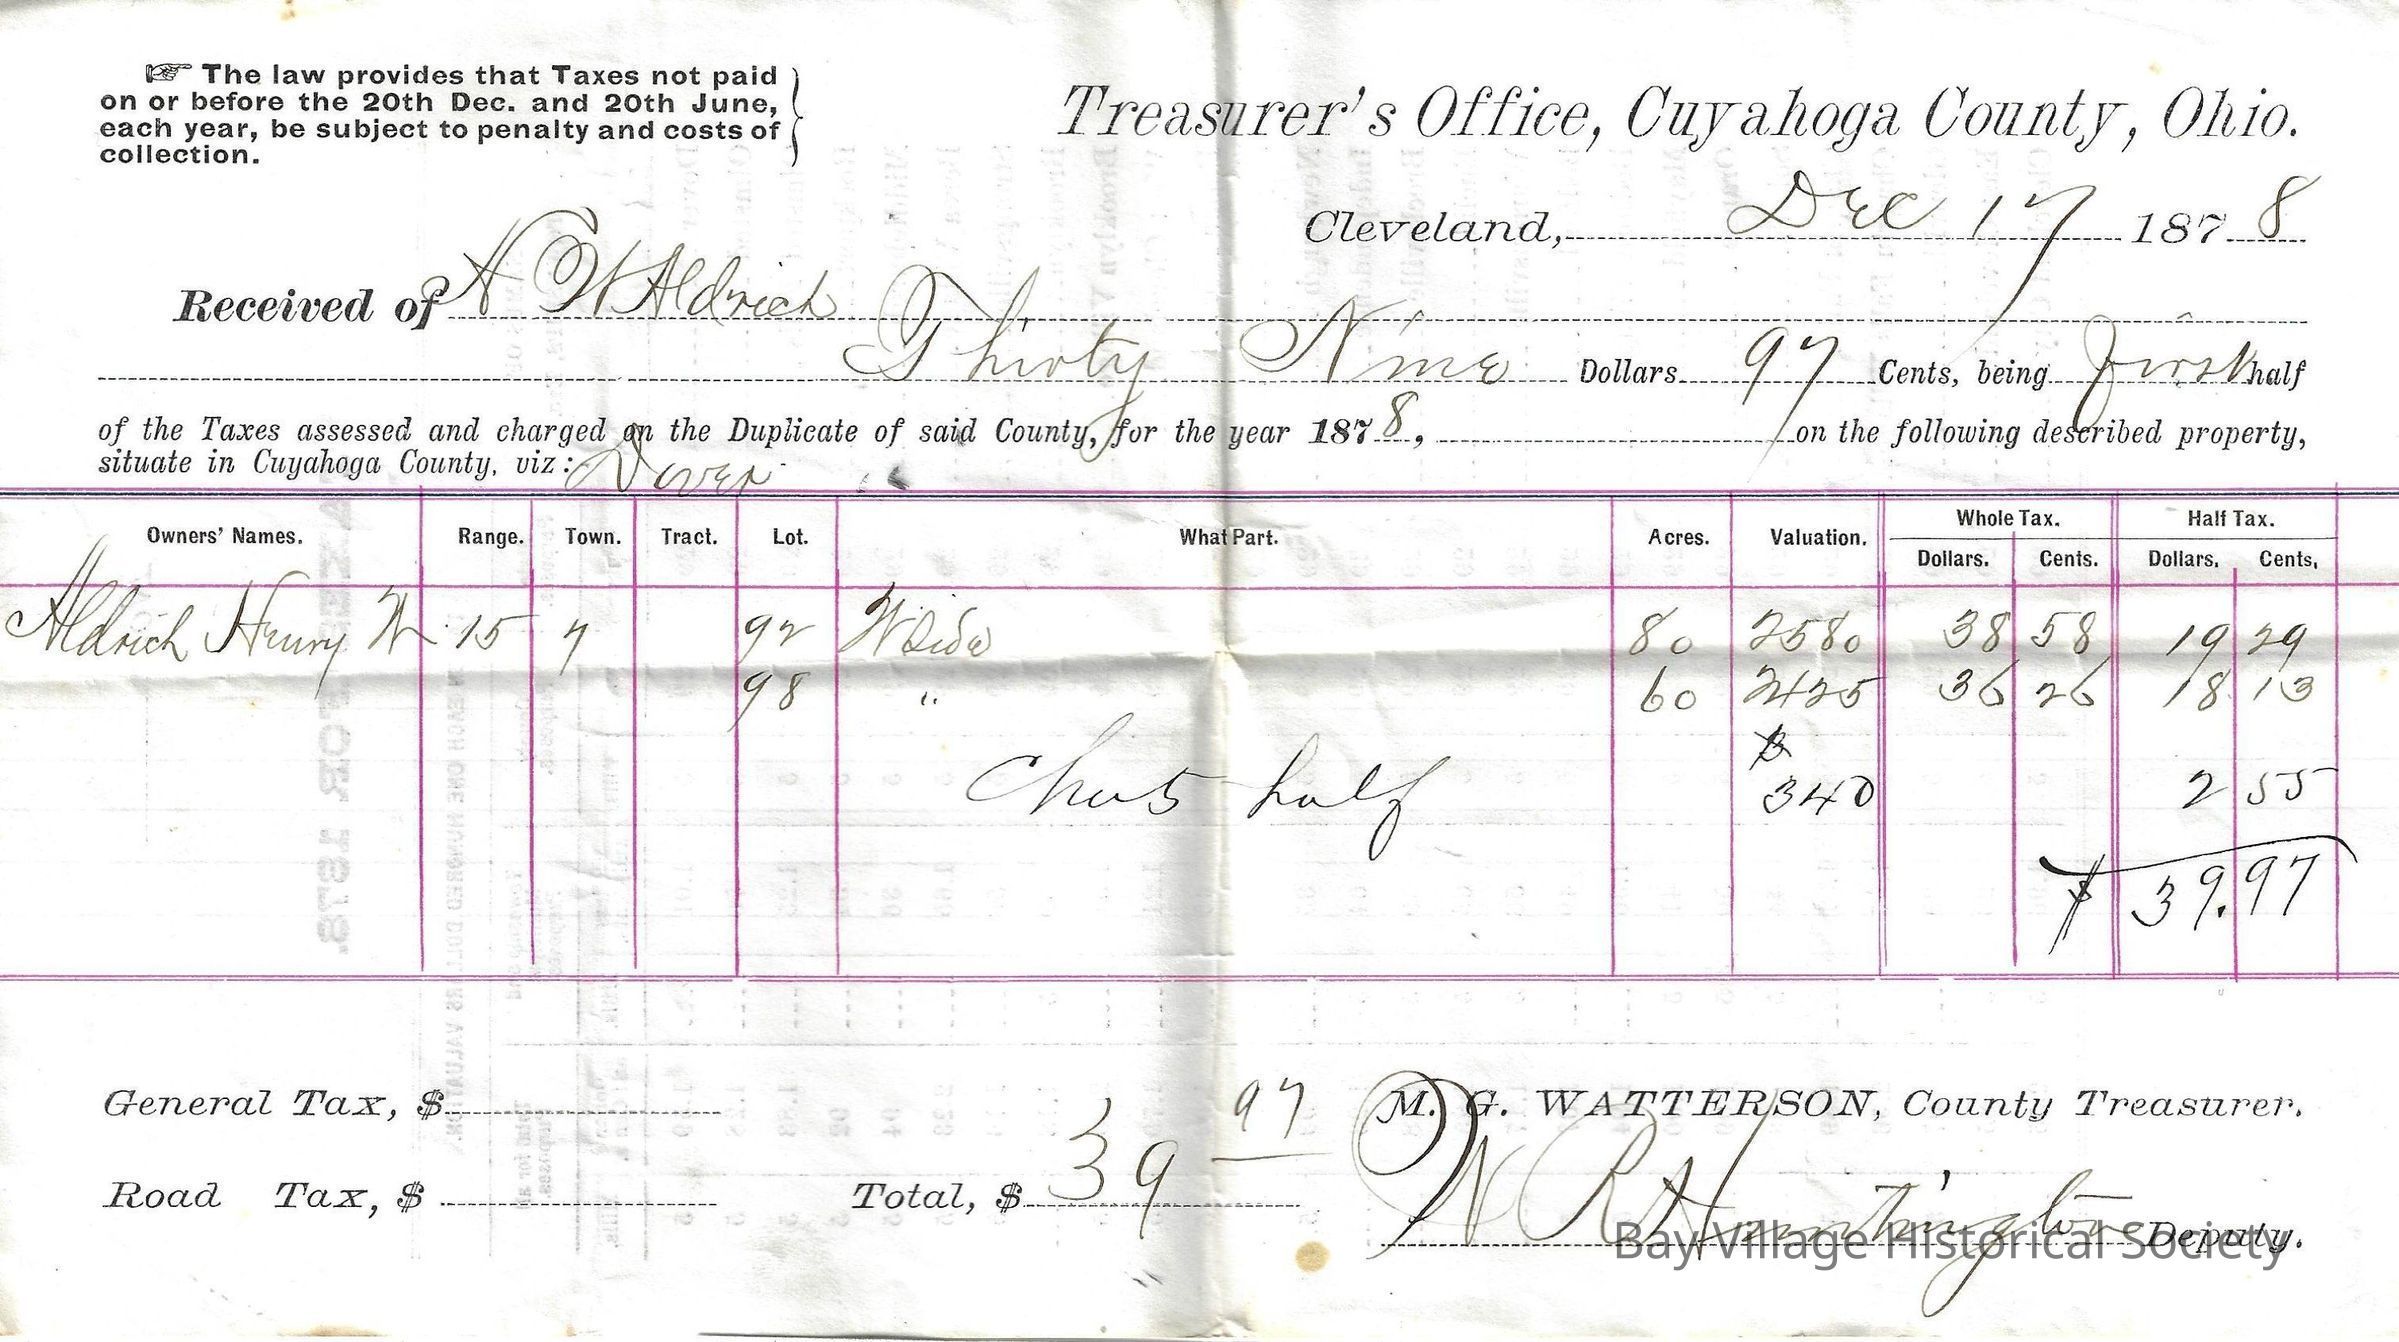 ☞ The law provides that Taxes not paid
on or before the 20th Dec. and 20th June,
each year, be subject to penalty and costs of
collection.
Treasurer's Office, Cuyahoga County, Ohio.
Cleveland, Dec 17 1878
Received of H W Aldrich
Thirty Nine Dollars 97 Cents, being first half
of the Taxes assessed and charged on the Duplicate of said County, for the year 1878, on the following described property,
situate in Cuyahoga County, viz: Dover
Owners' Names. Range. Town. Tract. Lot. What Part. Acres. Valuation. Whole Tax. Half Tax.
Dollars. Cents. Dollars. Cents,
Aldrich Henry W 15 7 97 W Side 80 2580 38 58 19 29
98 " 60 2425 36 26 18 13
half 340 2 55
$ 39.97
General Tax, $
Road Tax, $
Total, $ 39 97
M. G. WATTERSON, County Treasurer.
Huntington Deputy.
Bay Village Historical Society